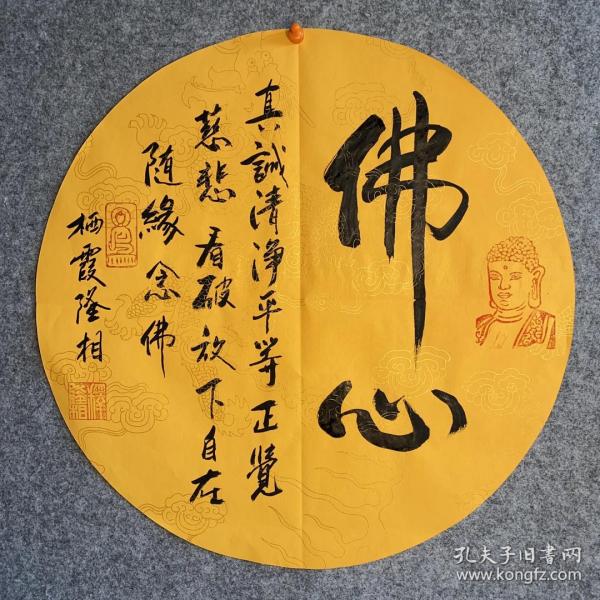 佛心
真誠清淨平等正覺
慈悲看破放下自在
随緣念佛
栖霞隆相
孔夫子旧书网
www.kongfz.com